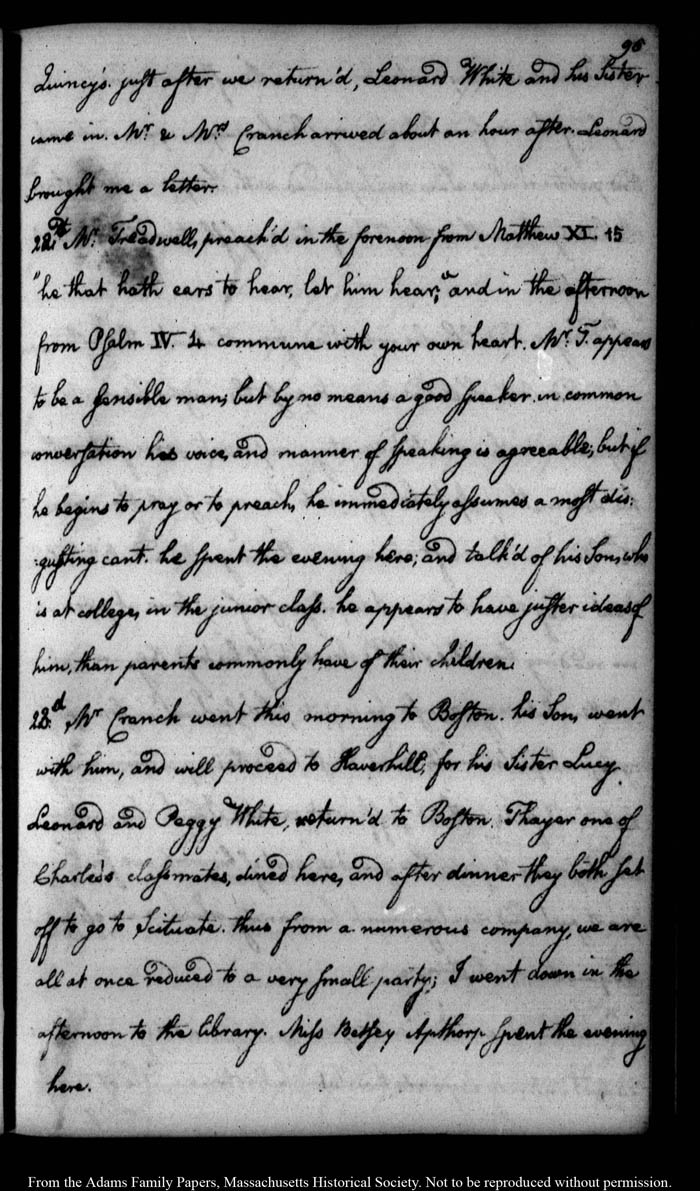 95
Quincy's. just after we return'd, Leonard White and his Sister
came in. Mr. & Mrs. Cranch arrived about an hour after. Leonard
brought me a letter.
22th. Mr. Treadwell, preach'd in the forenoon from Matthew XI. 15
"he that hath ears to hear, let him hear;" and in the afternoon
from Psalm IV. 4 commune with your own heart. Mr. T. appears
to be a sensible man; but by no means a good speaker. in common
conversation his voice, and manner of speaking is agreeable; but if
he begins to pray or to preach, he immediately assumes a most dis:
:gusting cant. he spent the evening here; and talk'd of his Son, who
is at college, in the junior class. he appears to have juster ideas of
him, than parents commonly have of their children.
23d. Mr Cranch went this morning to Boston. his Son, went
with him, and will proceed to Haverhill, for his Sister Lucy.
Leonard and Peggy White, return'd to Boston. Thayer one of
Charles's classmates, dined here, and after dinner they both set
off to go to Scituate. thus from a numerous company, we are
all at once reduced to a very small party; I went down in the
afternoon to the library. Miss Betsey Apthorp spent the evening
here.
From the Adams Family Papers, Massachusetts Historical Society. Not to be reproduced without permission.